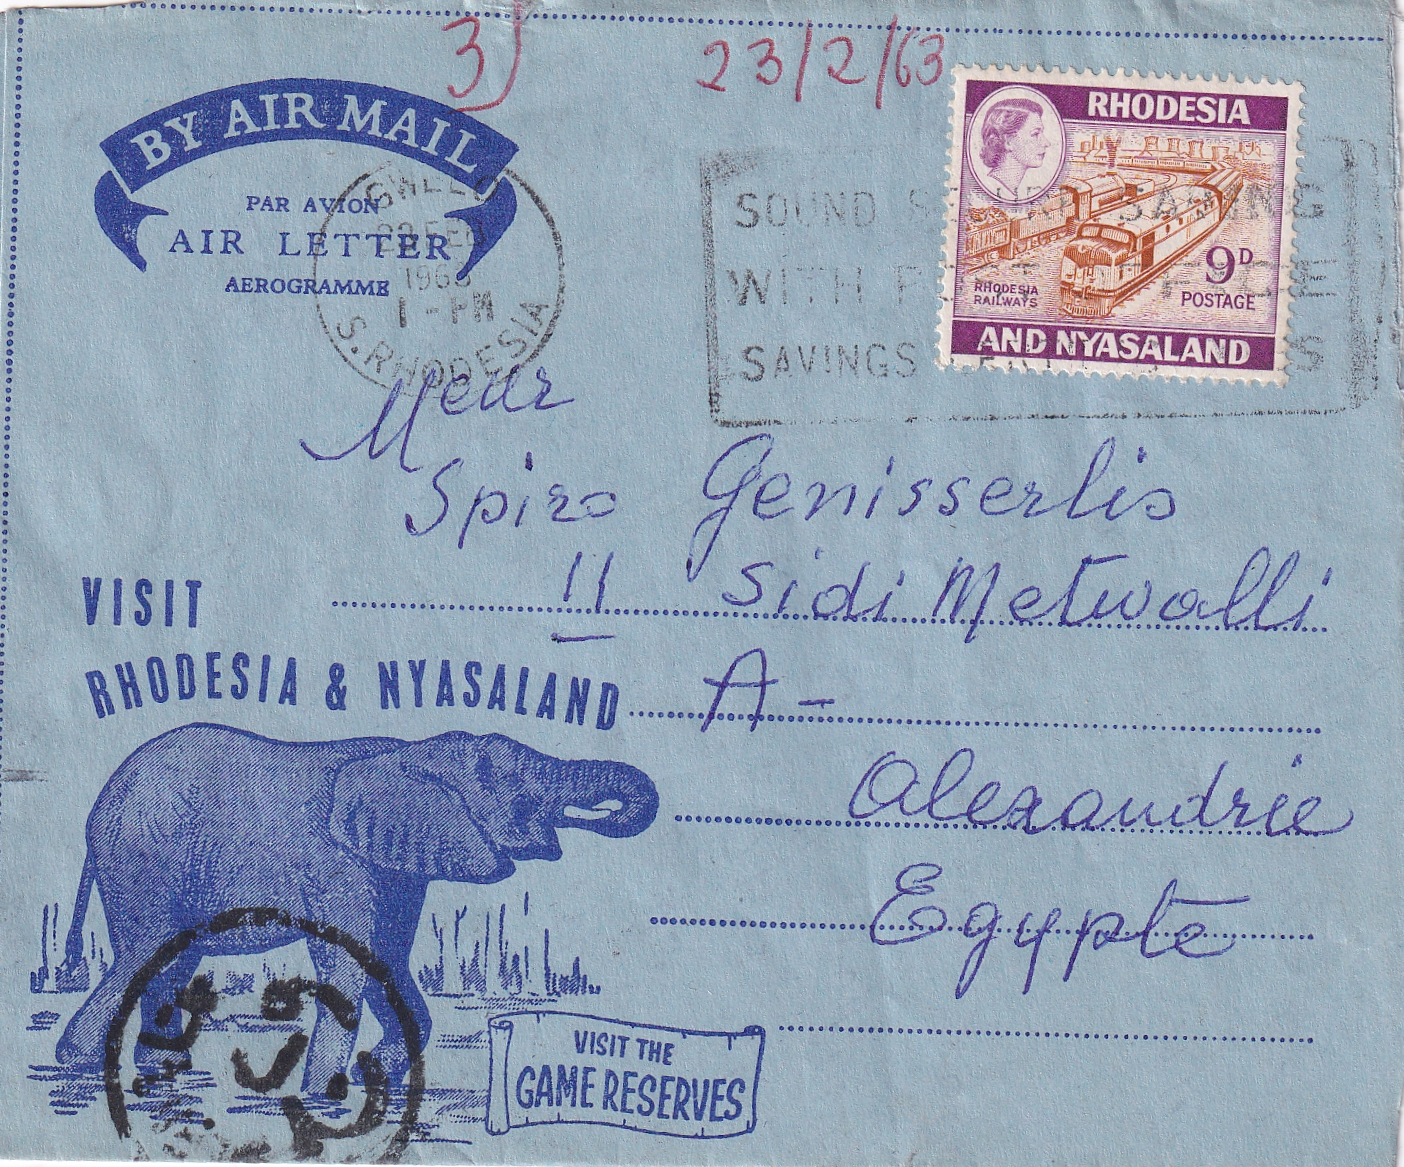 3)
23/2/63
BY AIR MAIL
PAR AVION
AIR LETTER
AEROGRAMME
GWELO
1963
1 - PM
S. RHODESIA
SOUND SAVING
WITH
SAVINGS
RHODESIA
9D
POSTAGE
RHODESIA
RAILWAYS
AND NYASALAND
Spiro Genisserlis
11 Sidi Metwalli
A-
Alexandrie
Egypte
VISIT
RHODESIA & NYASALAND
VISIT THE
GAME RESERVES